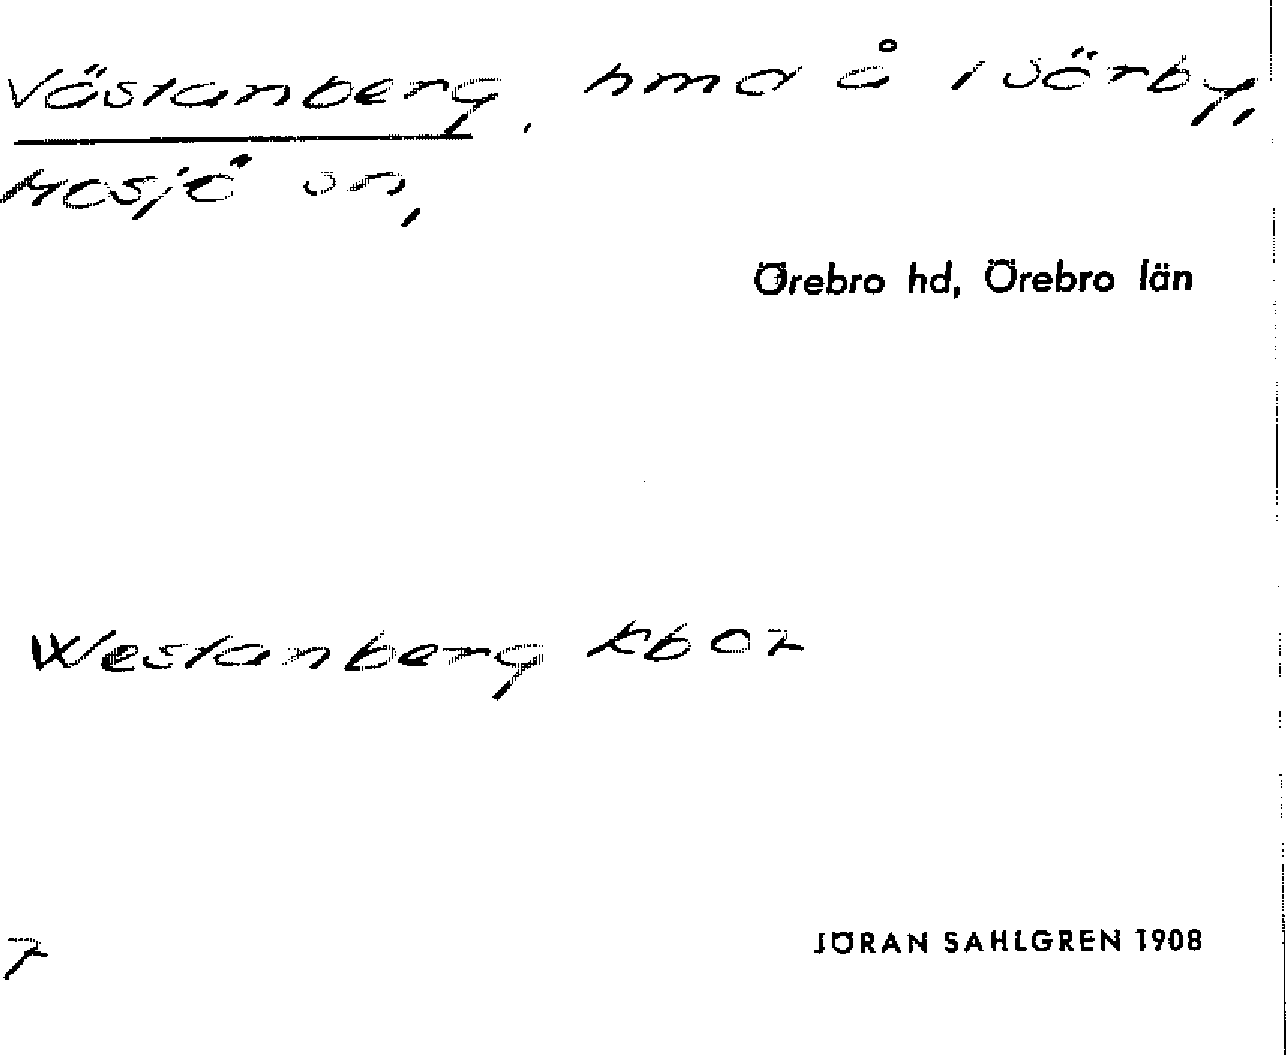 Västanberg, hmd å i Sörby,
Mosjö sn,
Örebro hd, Örebro län
Westanberg kb 02
7
JÖRAN SAHLGREN 1908